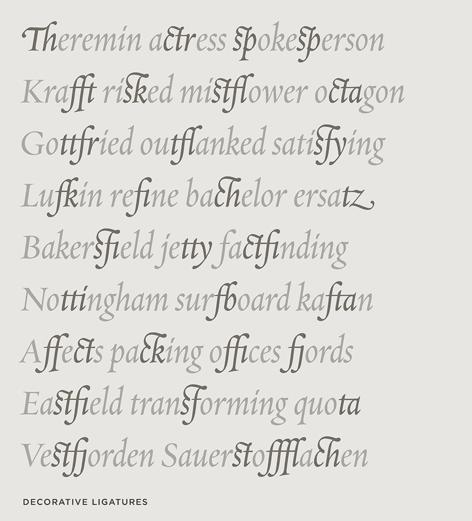 Theremin actress spokesperson
Krafft risked mistflower octagon
Gottfried outflanked satisfying
Lufkin refine bachelor ersatz
Bakersfield jetty factfinding
Nottingham surfboard kaftan
Affects packing offices fjords
Eastfield transforming quota
Vestfjorden Sauerstoffflachen
DECORATIVE LIGATURES